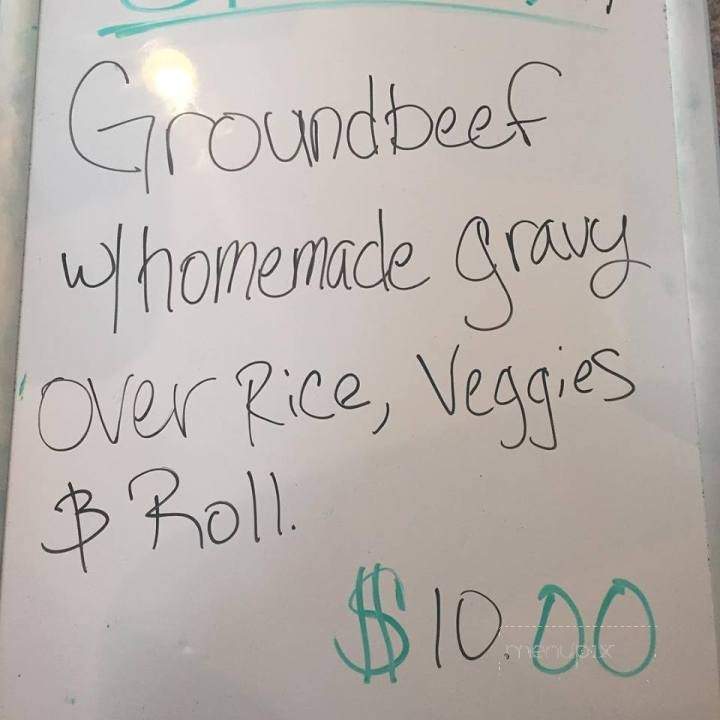 Groundbeef
w/homemade gravy
over Rice, Veggies
& Roll.
$10.00
menupix